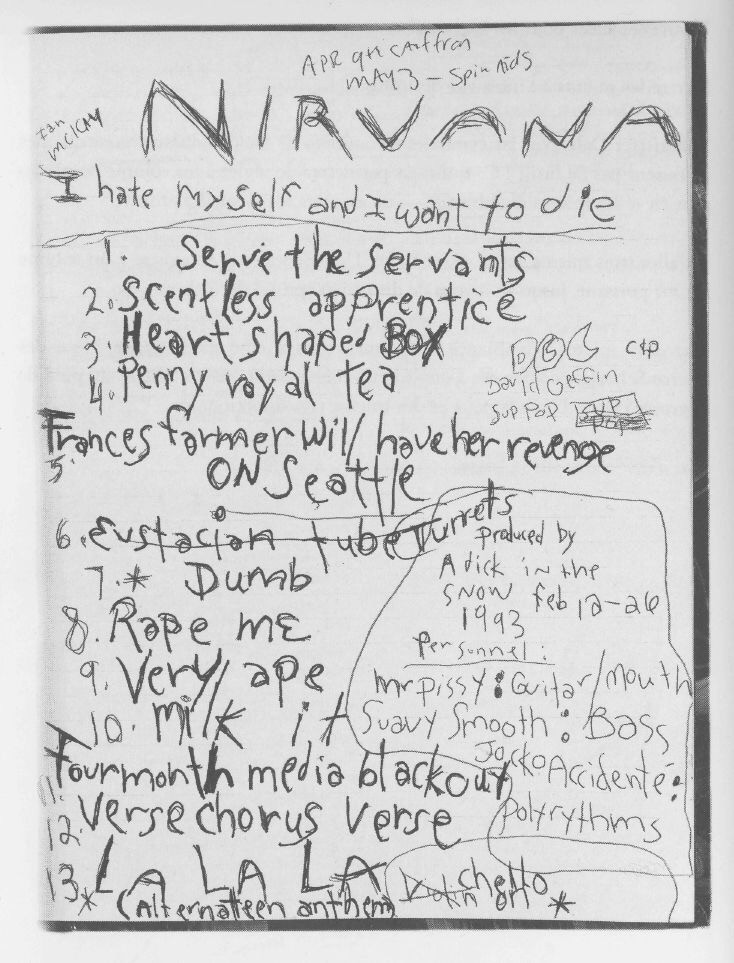 APR 9th
MAY 3 – Spin Aids
NIRVANA
Ian
I hate myself and I want to die
1. Serve the servants
2. Scentless apprentice
3 Heart shaped Box
4. Penny royal tea
DGC
David Geffin
Sup Pop
SUP
POP
Frances farmer will have her revenge
5. ON Seattle
6. Eustacian tube Turrets
7. * Dumb
8. Rape mE
9. Very ape
10. Milk it
11. Four month media blackout
12. Verse chorus verse
13. LA LA LA
* (Alternateen anthem)
produced by
A dick in the
SNOW Feb 12-26
1993
Personnel:
mr pissy: Guitar/mouth
Suavy Smooth: Bass
Jocko Accidenté:
polyrythms
chello
on *